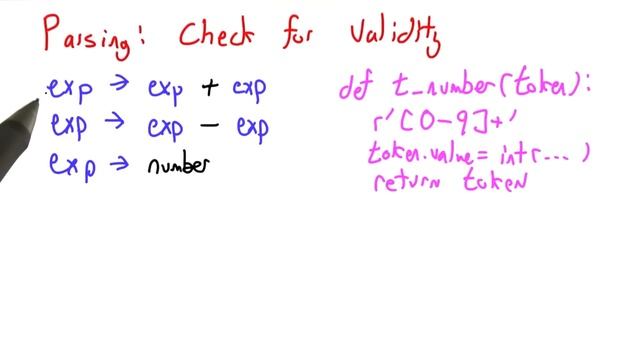 Parsing: Check for Validity
exp → exp + exp
exp → exp - exp
exp → number
def t_number(token):
r'[0-9]+'
token.value = int(...)
return token